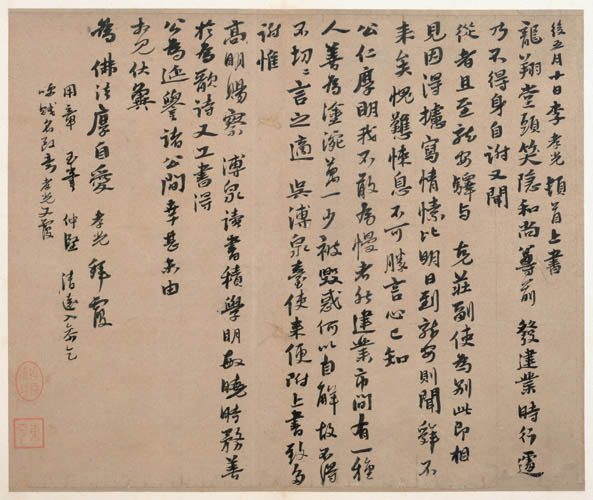 後五月十日李孝光頓首上書
龍翔堂頭笑隱和尚尊前 發建業時行遽
乃不得身自謝又聞
從者且至龍安驛與 克莊副使為別此即相
見因得攄寫情愫比明日到龍安則聞舜不
来矣愧難悚息不可勝言心已知
公仁厚明我不敢為慢者然建業市間有一種
人善為塗浼萬一少被毀惑何以自解故不得
不切〻言之適 吳溥泉臺使来便附上書致多
謝惟
高明賜察 溥泉讀書積學明敏曉時務善
於為歌詩又工書得
公為延譽諸公間幸甚未由
相見伏冀
為佛法厚自愛 孝光拜覆
用章 玉章 仲 清遠
孝光又覆